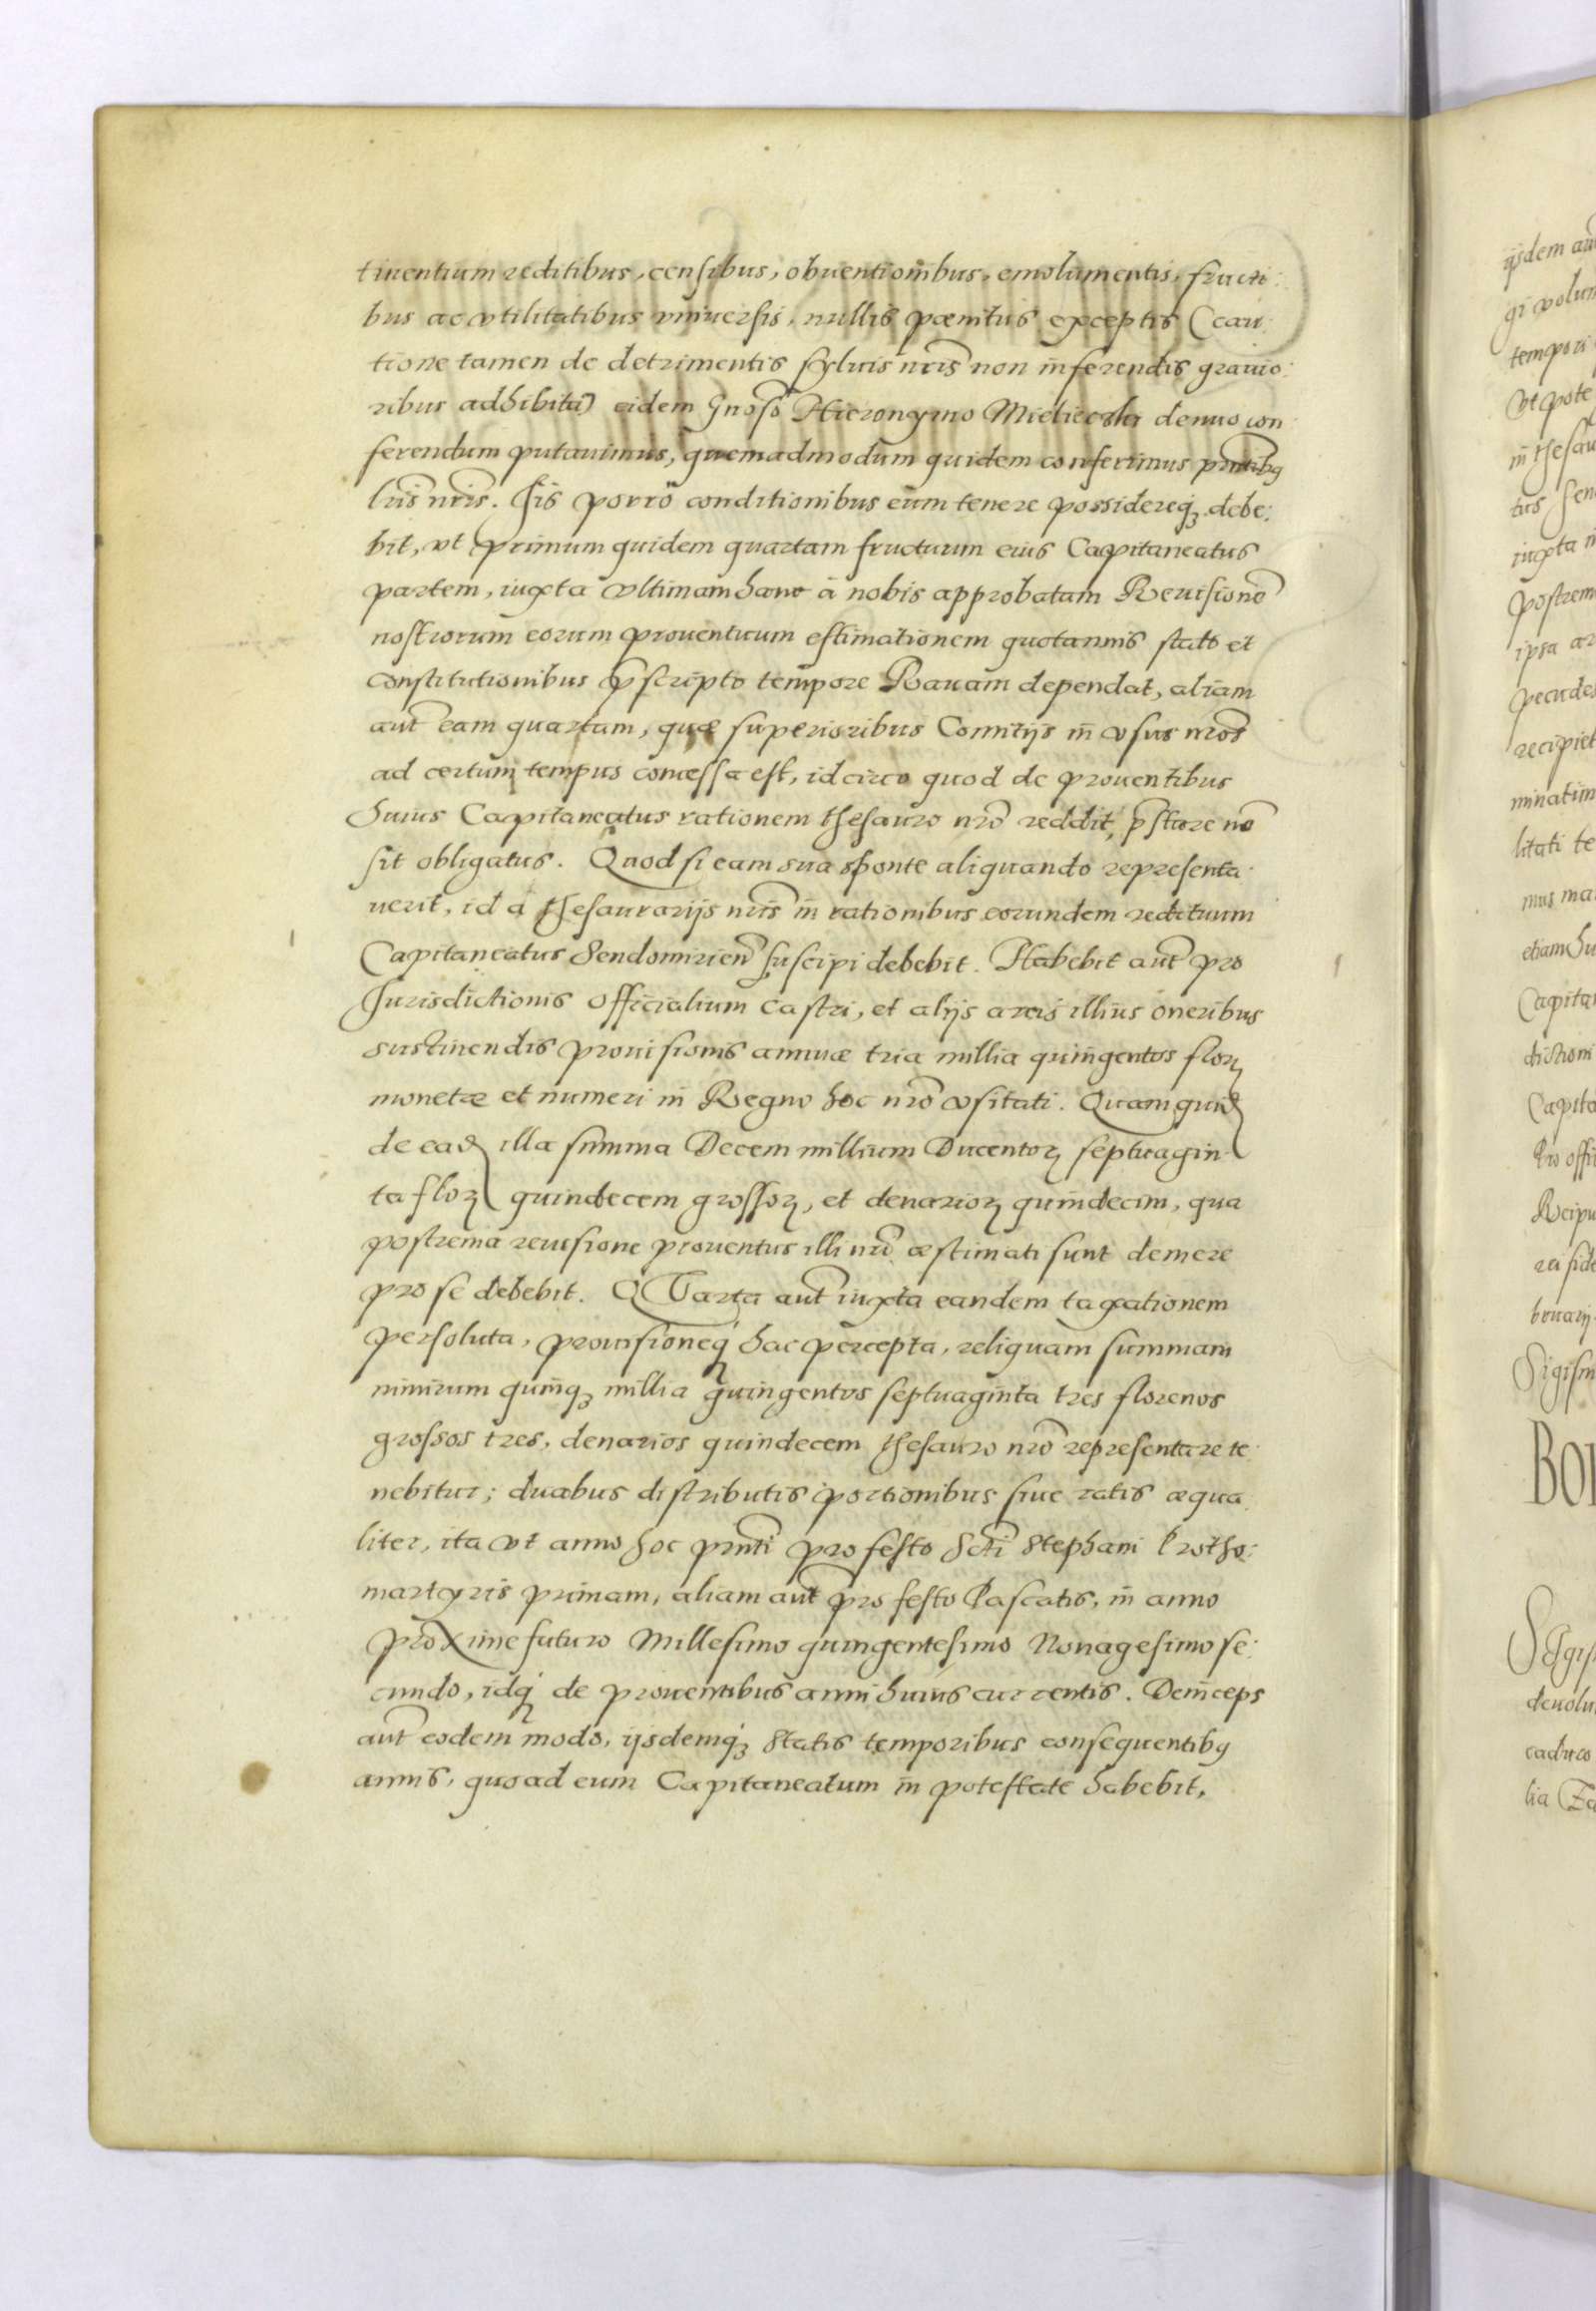 tinentium reditibus, censibus, obuentionibus, emolumentis, fructi:
bus ac vtilitatibus vniuersis, nullis pœnitus exceptis (cau:
tione tamen de detrimentis syluis nr̃is non inferendis grauio:
ribus adhibita) eidem Gnoso Hieronymo Mieliecski denuo con
ferendum putauimus, quemadmodum quidem conferimus pñtibꝫ
lr̃is nr̃is. His porrò conditionibus eum tenere possidereqꝫ debe:
bit, vt primum quidem quartam fructuum eius Capitaneatus
partem, iuxta vltimam hanc à nobis approbatam Reuisionẽ
nostrorum eorum prouentuum estimationem quotannis stato et
constitutionibus p̃scripto tempore Rauam dependat, aliam
aut̃ eam quartam, quæ superioribus Comitijs in vsus nr̃os
ad certum tempus concessa est, idcirco quod de prouentibus
huius Capitaneatus rationem thesauro nr̃o reddit, p̃stare nõ
sit obligatus. Quod si eam sua sponte aliquando representa:
uerit, id à thesaurarijs nr̃is in rationibus eorundem redituum
Capitaneatus Sendomirien̄ suscipi debebit. Habebit aut̃ pro
Jurisdictionis officialium castri, et alijs arcis illius oneribus
sustinendis prouisionis annuæ tria millia quingentos florꝫ
monetæ et numeri in Regno hoc nr̃o vsitati. Quam quid̃
de ead̃ illa summa Decem millium Ducentorꝫ septuagin
ta florꝫ quindecem grossorꝫ, et denariorꝫ quindecim, qua
postrema reuisione prouentus illi nr̃i æstimati sunt demere
pro se debebit. QVarta aut̃ iuxta eandem taxationem
persoluta, prouisioneq́ hac percepta, reliquam summam
nimirum quinqꝫ millia quingentos septuaginta tres florenos
grossos tres, denarios quindecem thesauro nr̃o representare te
nebitur; duabus distributis portionibus siue ratis æqua:
liter, ita vt anno hoc pñti pro festo Scti Stephani Protho:
martyris primam, aliam aut̃ pro festo Pascatis, in anno
proxime futuro Millesimo quingentesimo Nonagesimo se:
cundo, idq́ de prouentibus anni huius currentis. Deinceps
aut̃ eodem modo, ijsdemqꝫ statis temporibus consequentibꝫ
annis, quoad eum Capitaneatum in potestate habebit,